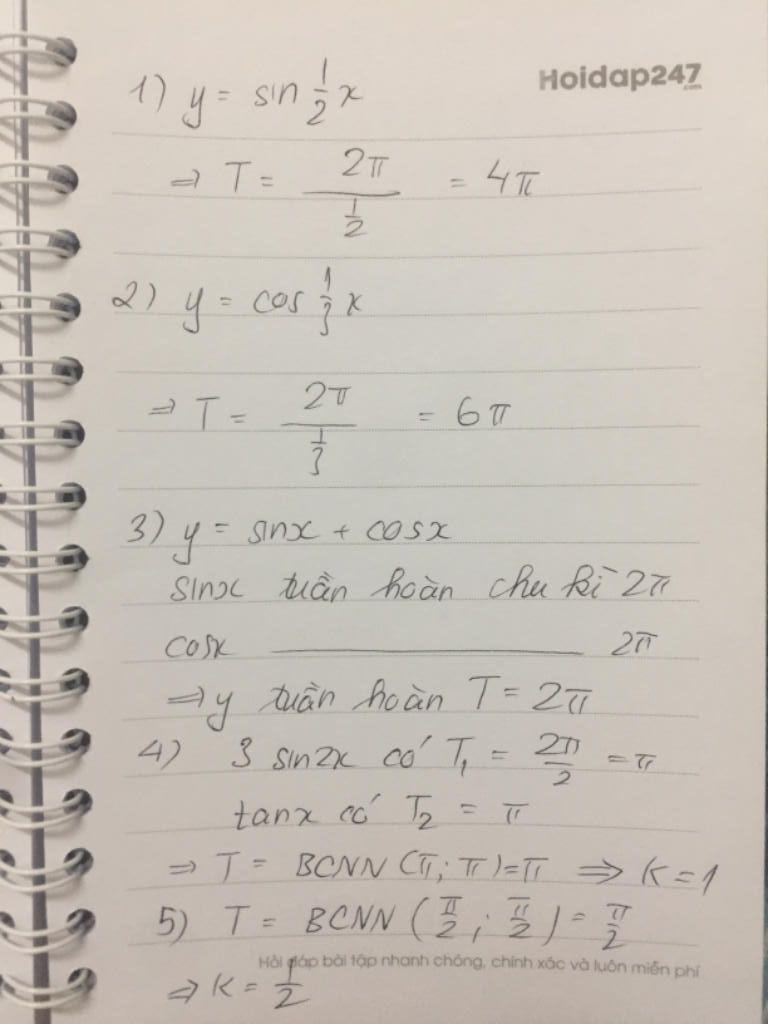 Hoidap247
.com
1) y = sin 1/2 x
⇒ T = 2π / (1/2) = 4π
2) y = cos 1/3 x
⇒ T = 2π / (1/3) = 6π
3) y = sinx + cosx
sinx tuần hoàn chu kì 2π
cosx ———— 2π
⇒ y tuần hoàn T = 2π
4) 3 sin2x có T₁ = 2π/2 = π
tanx có T₂ = π
⇒ T = BCNN (π; π) = π ⇒ K = 1
5) T = BCNN (π/2; π/2) = π/2
Hỏi đáp bài tập nhanh chóng, chính xác và luôn miễn phí
⇒ K = 1/2